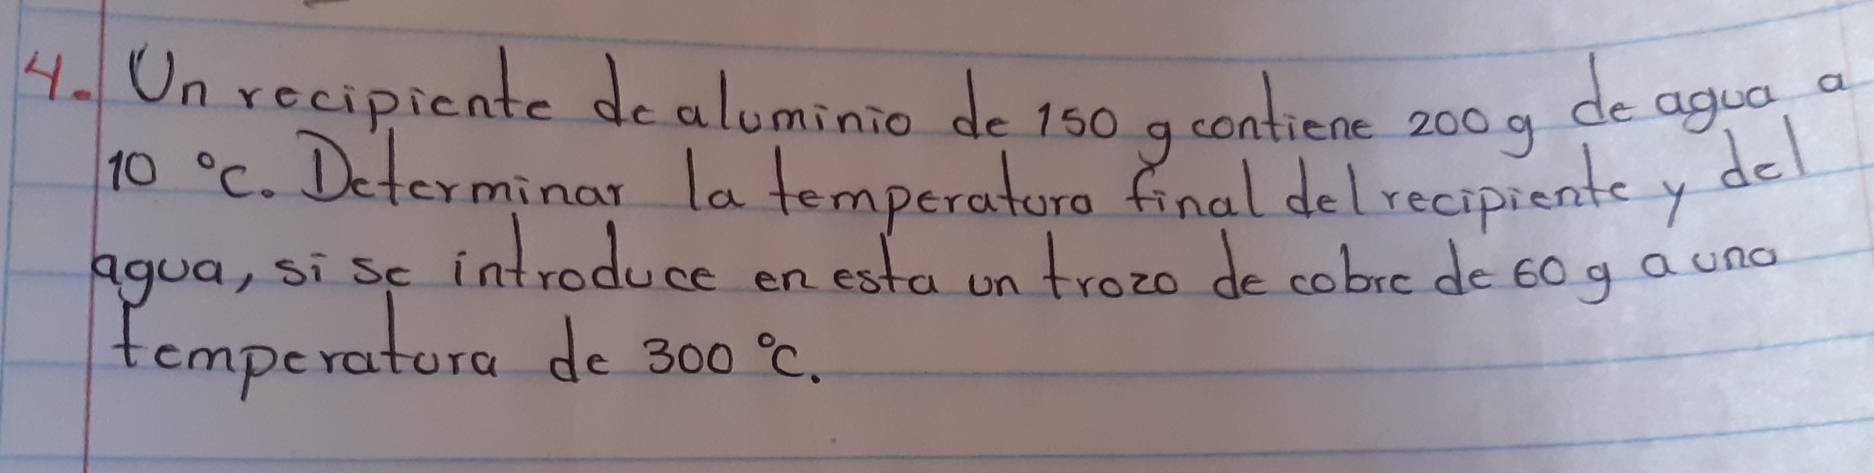 4. Un recipiente de aluminio de 150 g contiene 200 g de agua a
10 °C. Determinar la temperatura final del recipiente y del
agua, si se introduce en esta un trozo de cobre de 60 g a una
temperatura de 300 °C.